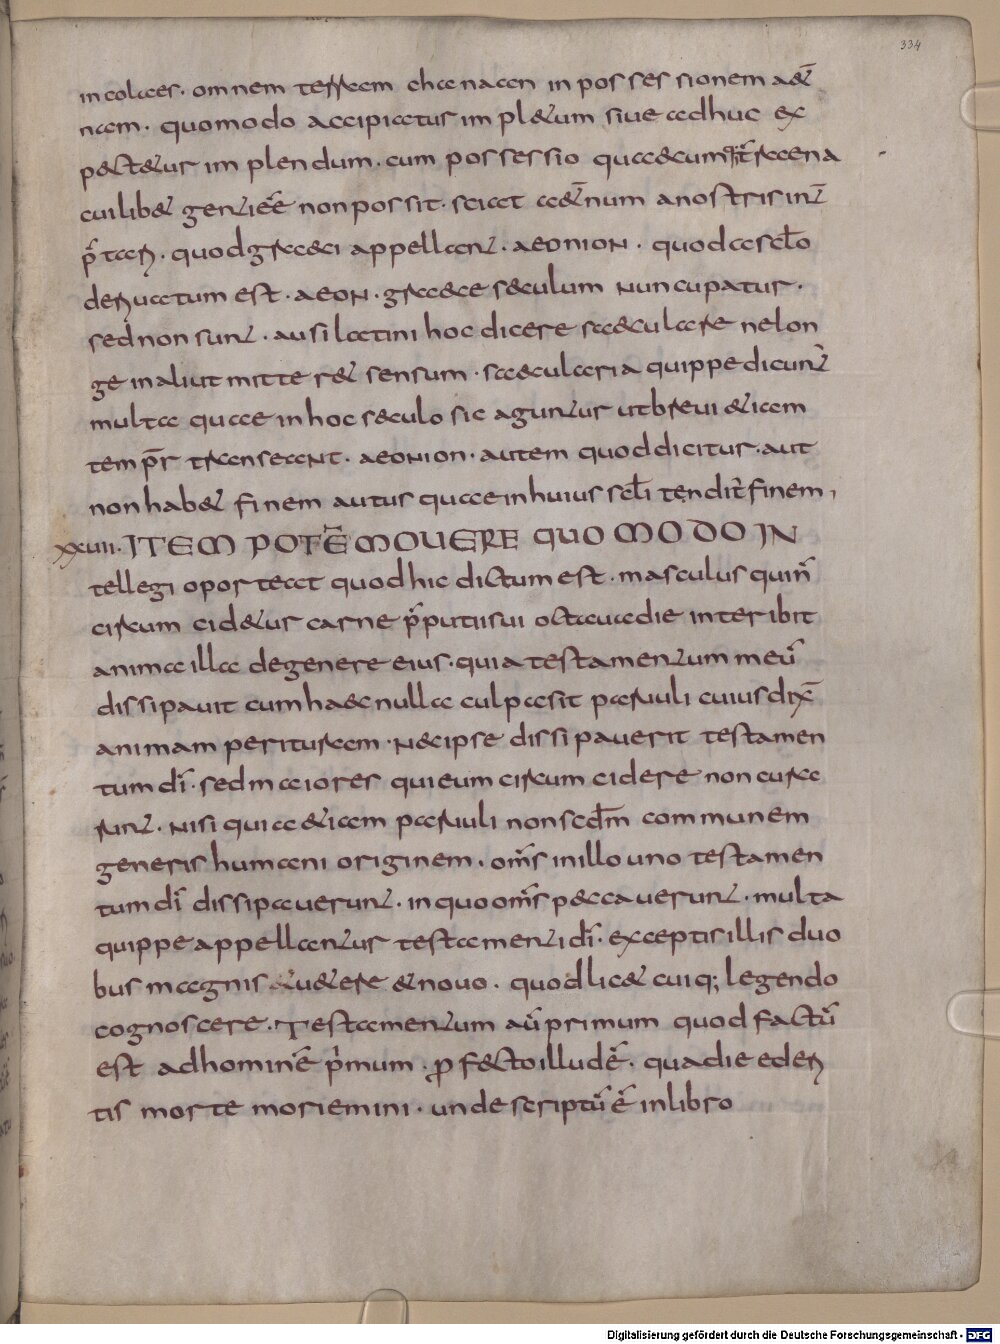 334
incolaes. omnem terram chanaan in possessionem aet̄
nam. quomodo accipiatur impletum siue adhuc ex
pectetur implendum. cum possessio quaecum q; t̄rena
cuilibet genti eē non possit. sciat aet̄num a nostris int̄
p̄tari. quod graeci appellant. AEONION. quod a sc̄lo
deriuatum est. AEON. graece seculum nuncupatur.
sed non sunt. ausi latini hoc dicere saeculare ne lon
ge in aliut mitteret sensum. saecularia quippe dicunt̄
multa quae in hoc seculo sic aguntur ut breui etiam
temp̄r transeant. AEONION. autem quod dicitur. aut
non habet finem aut usquae in huius sc̄li tendit̄ finem,
XXVII. ITEM POTĒ MOUERE QUO MODO IN
tellegi oporteat quod hic dictum est. masculus qui n̄
circumcidetur carne p̄putii sui octaua die interibit
anima illa de genere eius. quia testamentum meū
dissipauit cum haec nulla culpa sit paruuli cuius dix̄
animam perituram. nec ipse dissipauerit testamen
tum dī. sed maiores qui eum circumcidere non cura
runt. nisi quia etiam paruuli non secd̄m communem
generis humani originem. om̄s in illo uno testamen
tum dī dissipauerunt. in quo om̄s peccauerunt. multa
quippe appellantur testamenti dī. exceptis illis duo
bus magnis et uetere et nouo. quod licet cuiq; legendo
cognoscere. Testamentum aū primum quod factū
est ad hominē p̄mum. profecto illud ē. qua die ederi
tis morte moriemini. unde scriptū ē in libro
Digitalisierung gefördert durch die Deutsche Forschungsgemeinschaft - DFG